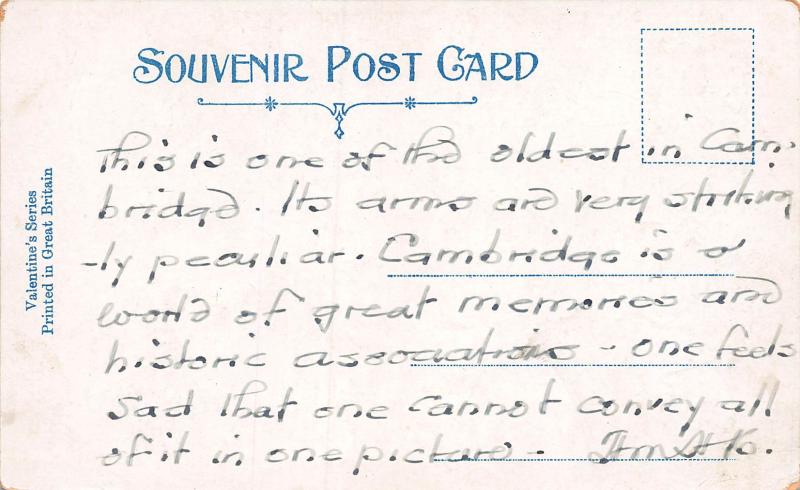 SOUVENIR POST CARD
Valentine's Series
Printed in Great Britain
This is one of the oldest in Cam-
bridge. Its arms are very striking
-ly peculiar. Cambridge is a
world of great memories and
historic associations - one feels
sad that one cannot convey all
of it in one picture -